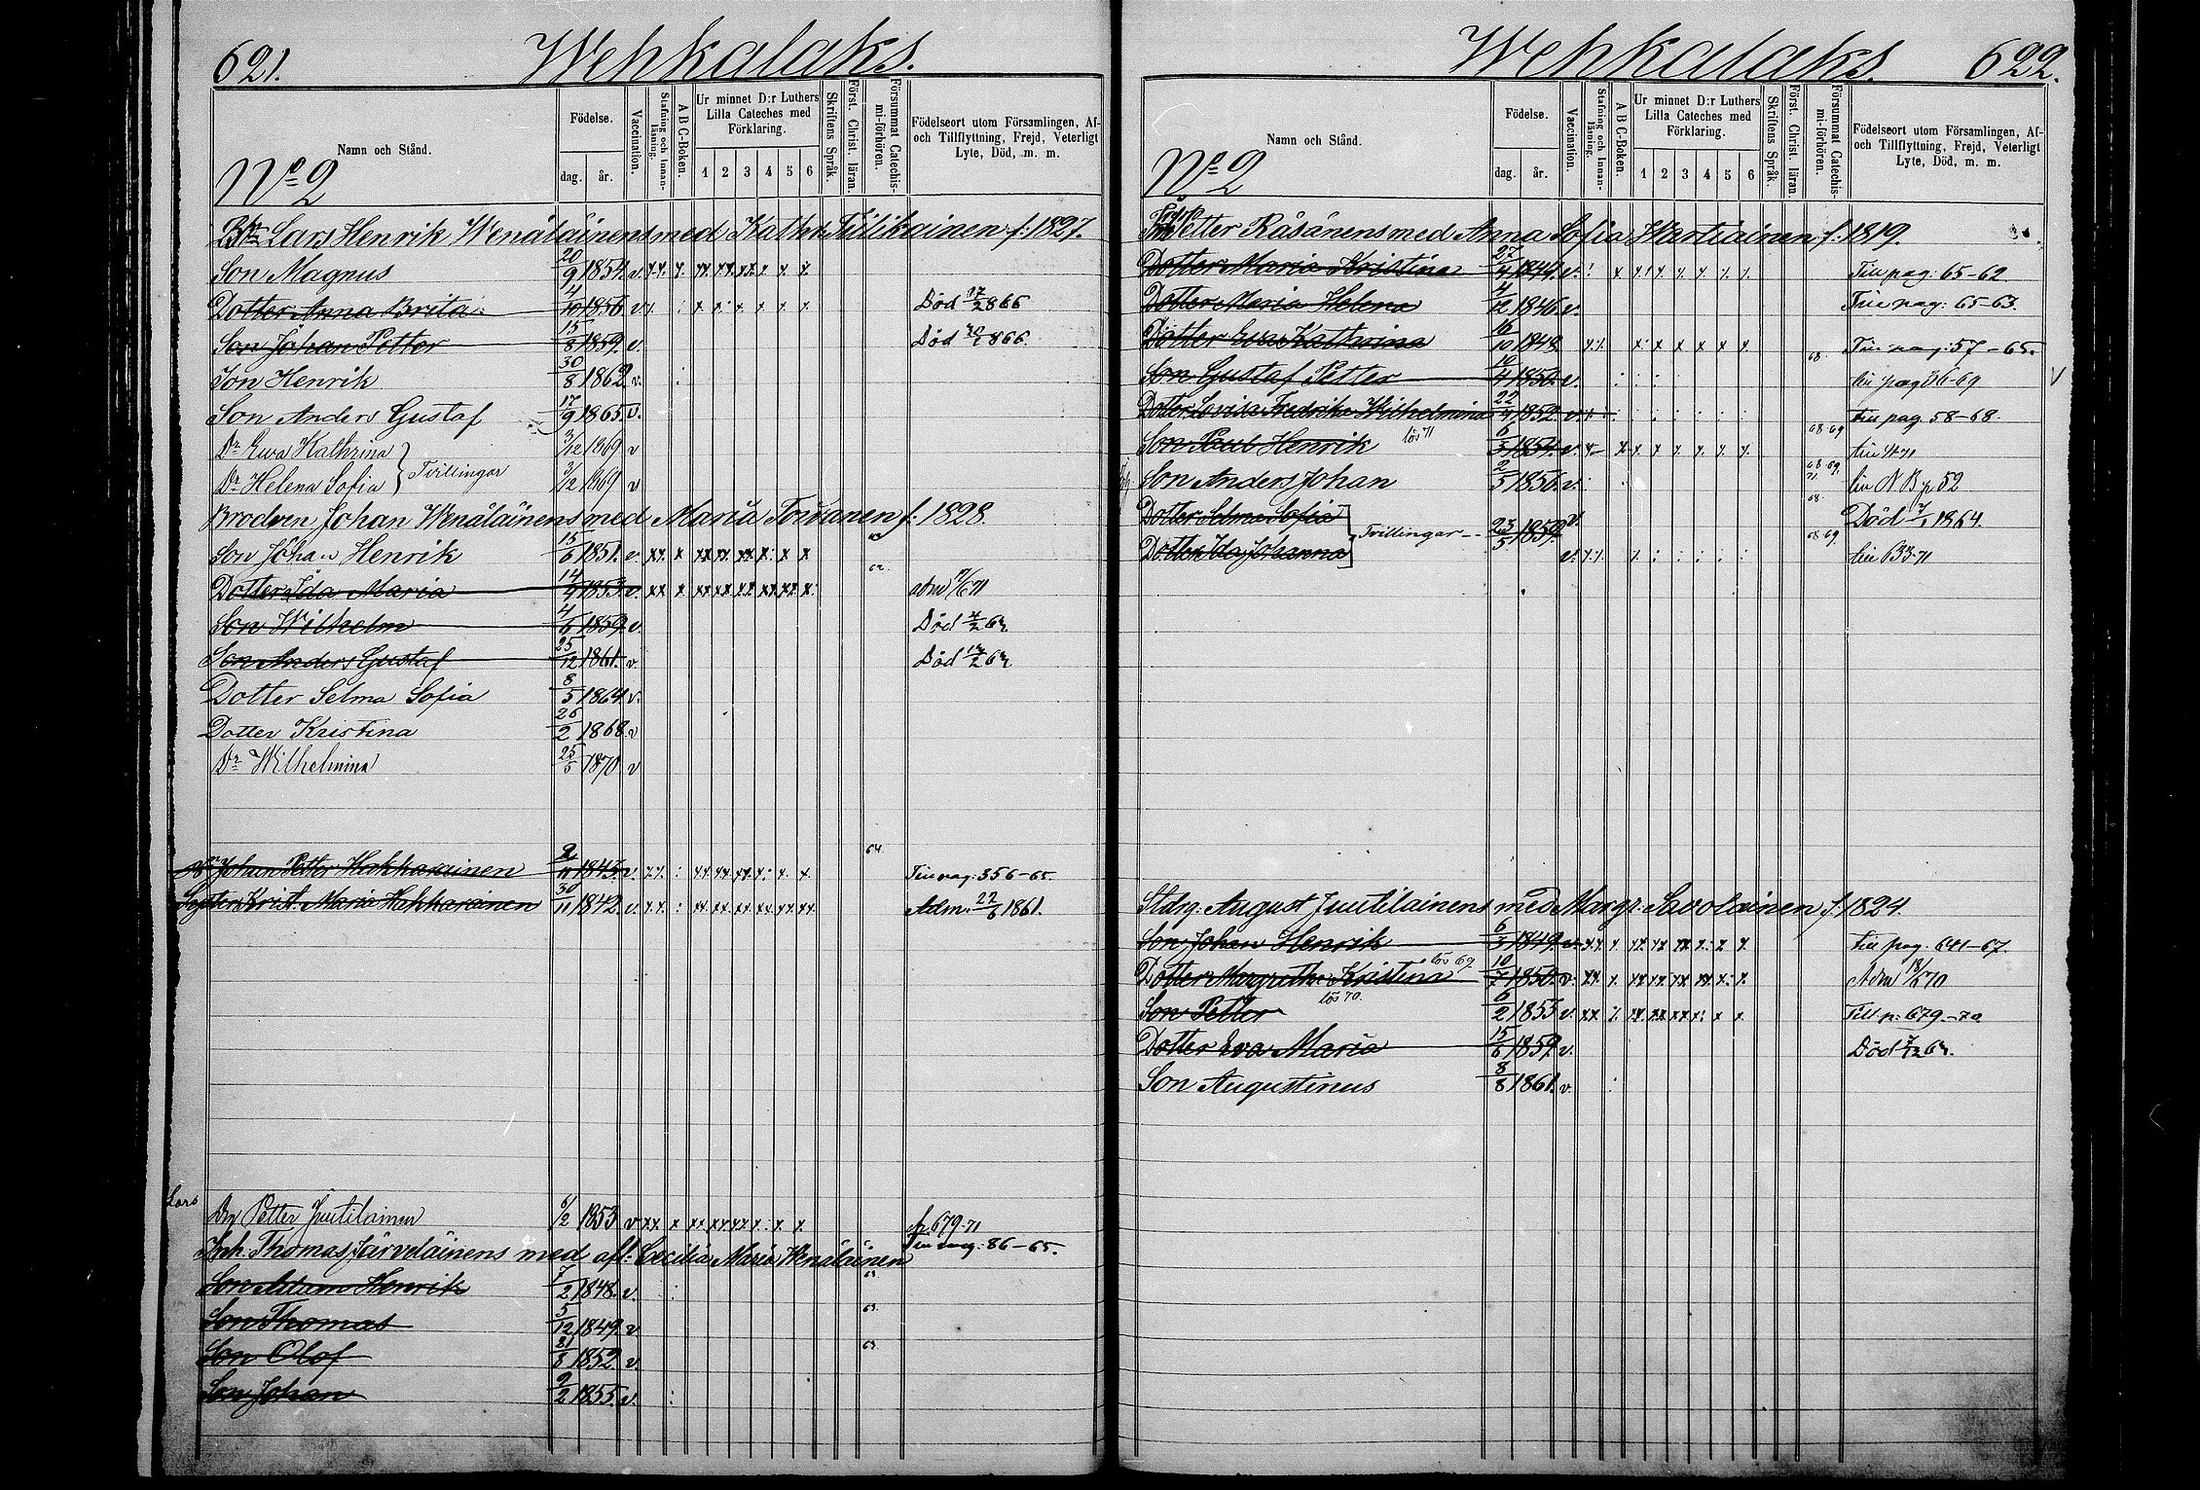 621.
Wehkalaks.
Namn och Stånd.
Födelse.
dag. år.
Vaccination.
Stafning och Innanläsning.
A B C-Boken.
Ur minnet D:r Luthers Lilla Cateches med Förklaring.
1 2 3 4 5 6
Skriftens Språk.
Först. Christ. läran.
Försummat Catechismi-förhören.
Födelseort utom Församlingen, Af- och Tillflyttning, Frejd, Veterligt Lyte, Död, m. m.
No 2
Lars Henrik Wenäläinens med Kath: Tiilikainen f: 1827.
Son Magnus 20/9 1854. v.
Dotter Anna Brita 1856 v. Död 17/2 866
Son Johan Petter 15/8 1859. v. Död 866
Son Henrik 30/8 1862 v.
Son Anders Gustaf 17/9 1865. v.
Dr Ewa Kathrina 3/12 1869 v
Dr Helena Sofia Tvillingar 3/12 1869 v
Brodren Johan Wenäläinens med Maria f. 1828.
Son Johan Henrik 15/6 1851. v.
Dotter Ida Maria 14/4 1853. v. adm 71
Son Wilhelm 4/6 1859. v. Död
Son Anders Gustaf 25/12 1861. v. Död
Dotter Selma Sofia 8/5 1864. v.
Dotter Kristina 26/2 1868. v
Dr Wilhelmina 25/5 1870 v
64.
Johan Petter Hakkarainen 1843. v. Tin pag: 356-65.
Syster Krist. Maria Hakkarainen 30/11 1842. v. Adm. 22/6 1861.
Lars
Drg Petter Juutilainen 6/2 1853 v fr 679-71
Inh. Thomas Järveläinens med afl. Cecilia Maria Wenäläinen Tin pag: 86-65.
Son Adam Henrik 7/2 1848. v. 63.
Son Thomas 5/12 1849. v 63.
Son Olof 21/8 1852. v. 63
Son Johan 2/2 1855. v.
Wehkalaks. 622.
Namn och Stånd.
Födelse.
dag. år.
Vaccination.
Stafning och Innanläsning.
A B C-Boken.
Ur minnet D:r Luthers Lilla Cateches med Förklaring.
1 2 3 4 5 6
Skriftens Språk.
Först. Christ. läran.
Försummat Catechismi-förhören.
Födelseort utom Församlingen, Af- och Tillflyttning, Frejd, Veterligt Lyte, Död, m. m.
No 2
Petter Räsänens med Anna Sofia Wartiainen f. 1819.
Dotter Maria Kristina 27/4 1844. v. Tin pag: 65-62
Dotter Maria Helena 4/12 1846. v. Tin pag: 65-63.
Dotter Eva Kathrina 16/10 1848 Tin pag: 57-65.
Son Gustaf Petter 10/4 1850. v. 68. tin pag 36-69
Dotter Lovisa Fredrika Wilhelmina 22/4 1852. v. tin pag. 58-68
Son Paul Henrik lös 71 6/3 1854. v. 68 69
Son Anders Johan 2/5 1856. v. 68. 69. 71. tin N B p 52
Dotter Selma Sofia Tvillingar 23/5 1859. v. 68. Död 1864.
Dotter Ida Johanna v. 68 69. tin 633-71
Stdrg. August Juutilainens med Margr: Savolainen f. 1824.
Son Johan Henrik 6/3 1849. v. tin pag. 641-67.
Dotter Margretha Kristina lös 69 10/7 1850. v. Adm 70
Son Petter lös 70. 6/2 1853 v. Till p: 679-70
Dotter Eva Maria 15/6 1859. v. Död
Son Augustinus 8/8 1861. v.